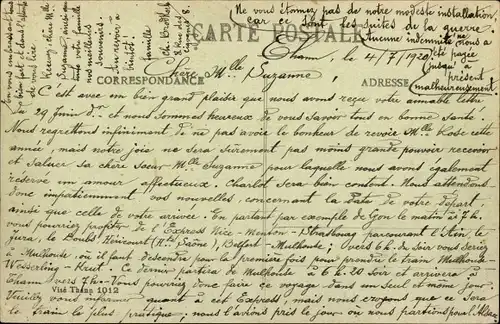 Ne vous étonnez pas de notre modeste installation,
car ce sont les suites de la guerre.
Aucune indemnité ne nous a
été payée
jusqu'à
présent
malheureusement
CARTE POSTALE
Thann, le 4/7/1920
CORRESPONDANCE
ADRESSE
Chère Mlle Suzanne
C'est avec un bien grand plaisir que nous avons reçu votre aimable lettre
du 29 Juin dr. et nous sommes heureux de vous savoir tous en bonne santé.
Nous regrettons infiniment de ne pas avoir le bonheur de revoir Mlle Rose cette
année, mais notre joie ne sera surement pas moins grande pouvoir recevoir
et saluer sa chère soeur Mlle Suzanne pour laquelle nous avons également
réservé un amour affectueux. Charlot sera bien content. Nous attendons
donc impatiemment vos nouvelles, concernant la date de votre départ
ainsi que celle de votre arrivée. En partant par exemple de Gon le matin à 7 h.
vous pourriez profiter de l'Express Nice-Menton-Strasbourg parcourant l'Ain, le
Jura, le Doubs, Héricourt (Hte Saône), Belfort-Mulhouse; vers 6 h. du soir vous seriez
à Mulhouse où il faut descendre pour la première fois pour prendre le train Mulhouse-
Wesserling-Krut. Ce dernier partira de Mulhouse à 6 h. 20 soir et arrivera à
Thann vers 7 h. Vous pourriez donc faire ce voyage dans un seul et même jour.
Veuillez vous informer quant à cet Express, mais nous croyons que ce sera
le train le plus pratique; nous l'avions pris le jour où nous partions pour l'Alsace
Vise Thann 1012
en vous embrassant
bien fort et dans l'attente
de vous lire
recevez, chère Mlle
Suzanne ainsi que
vos
meilleurs
souvenirs.
Au revoir, à
bientôt!
famille